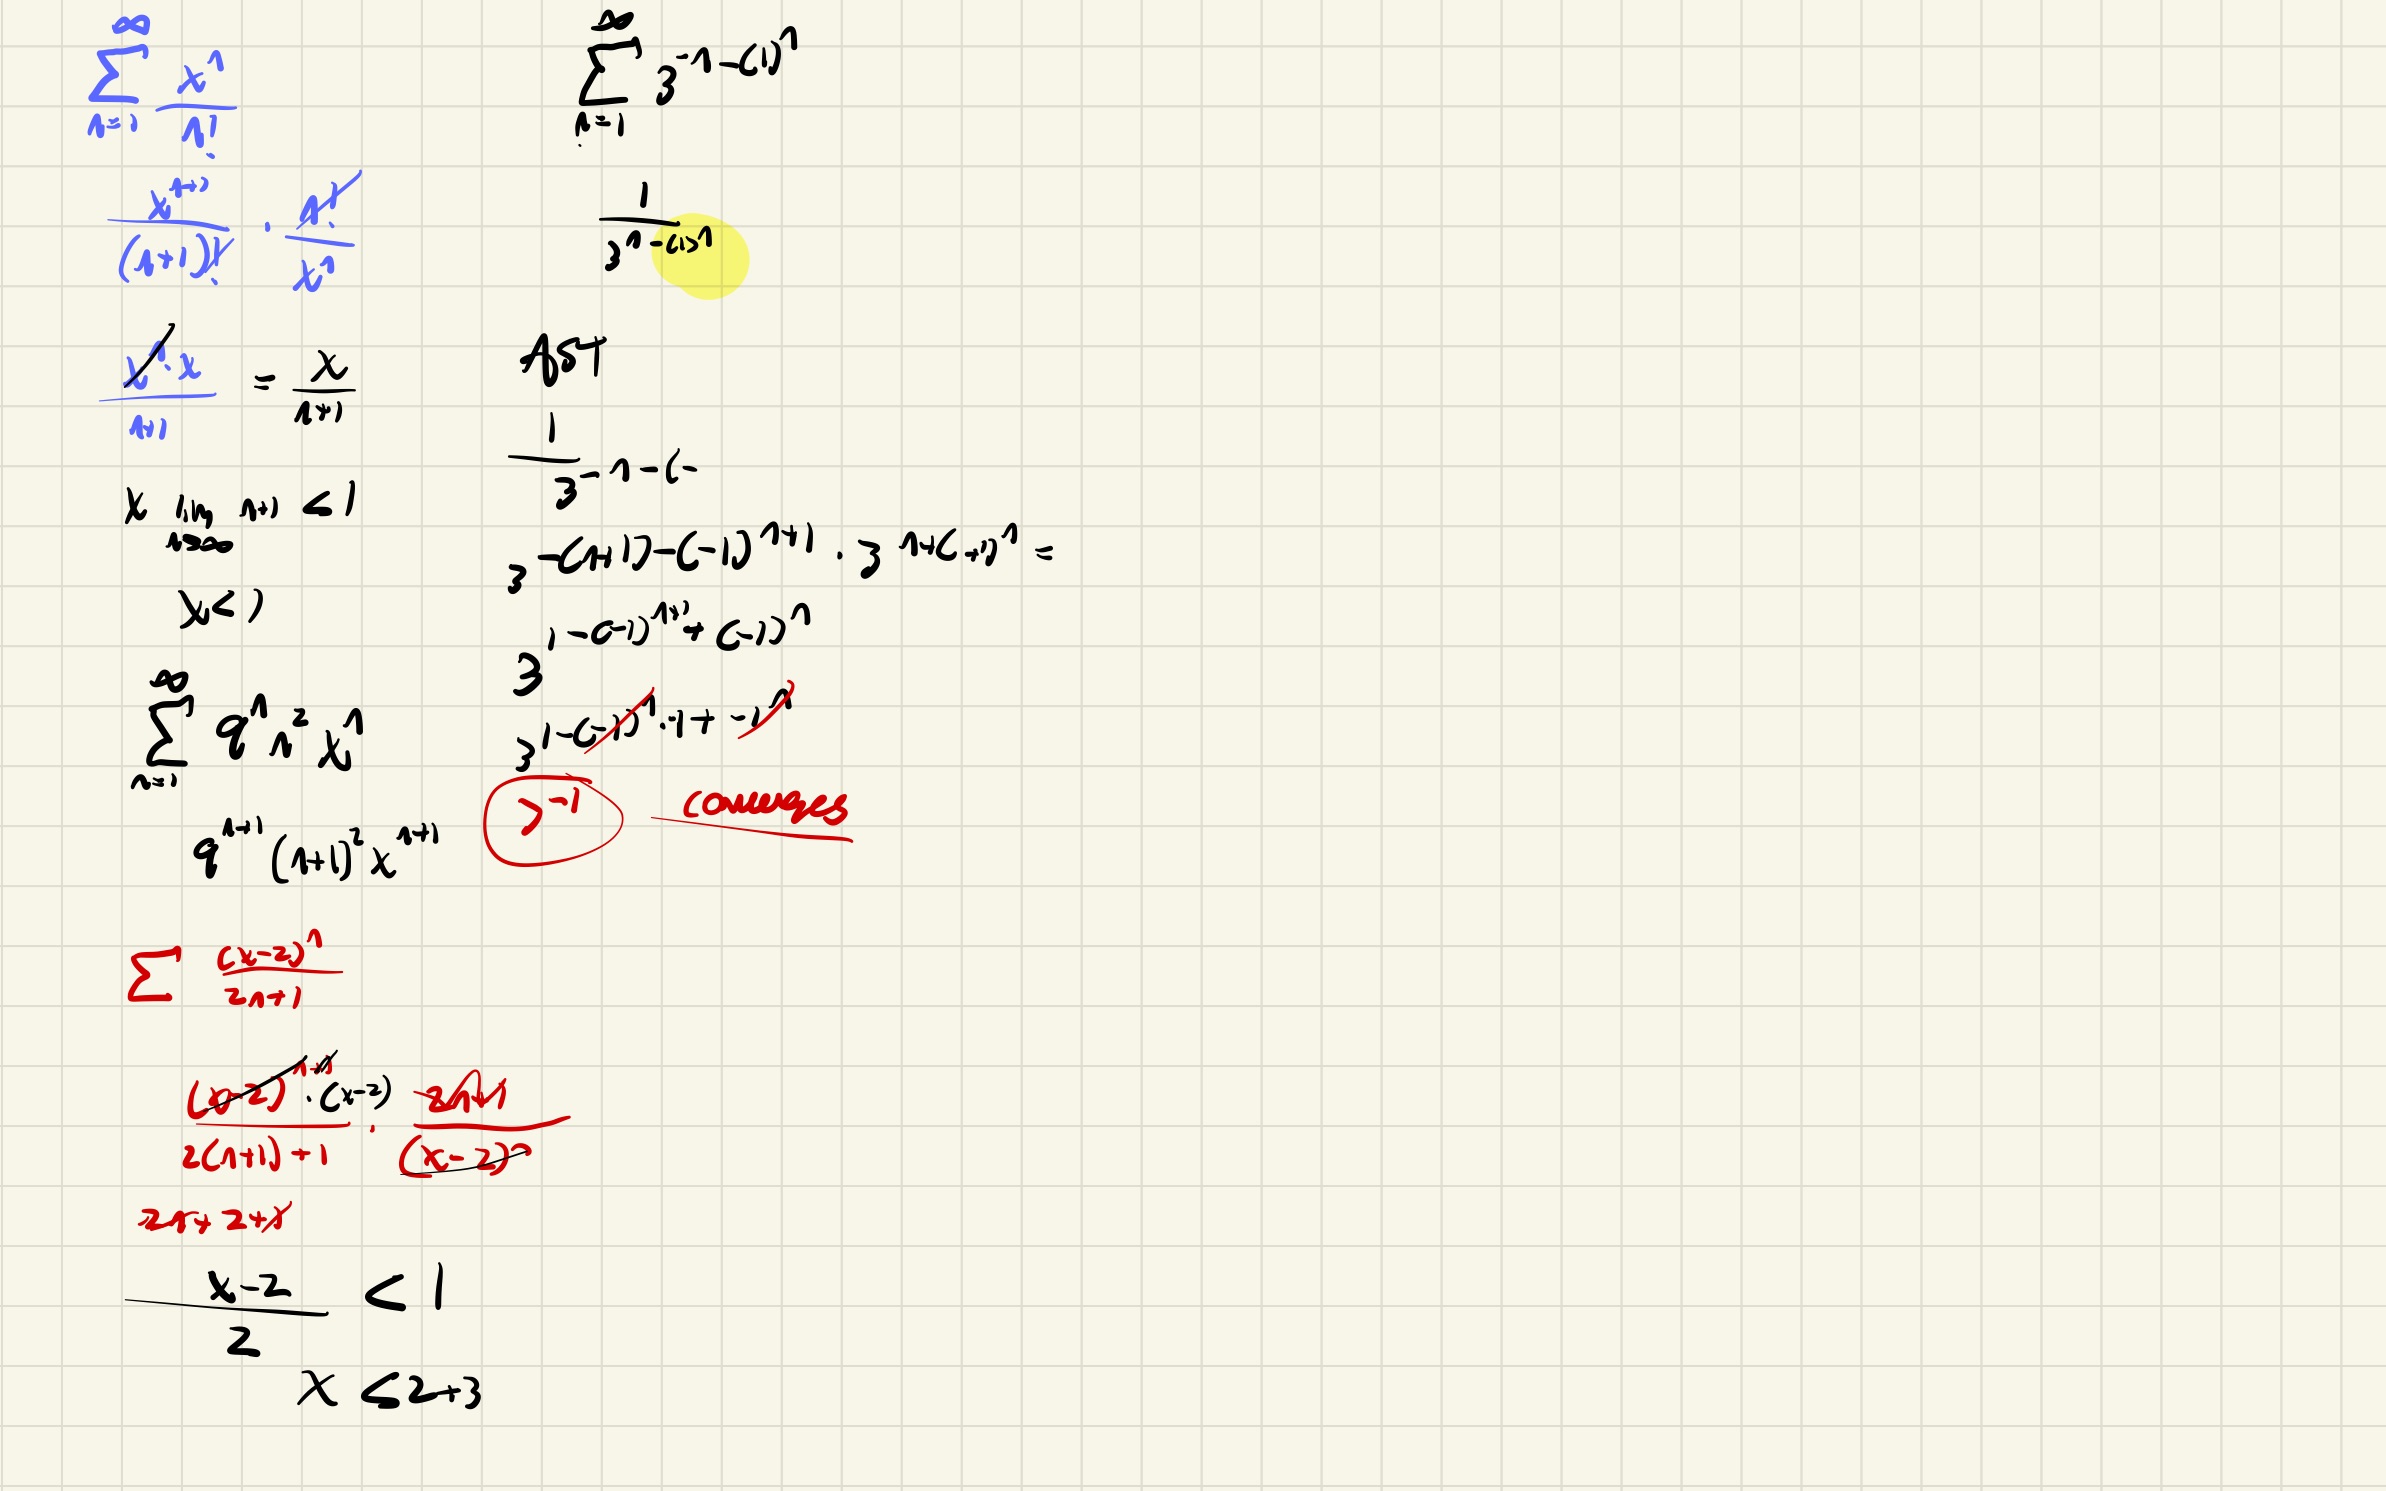 ∞
Σ x^n
n=1 n!
x^(n+1) / (n+1)! · n! / x^n
x^n · x / n+1 = x / n+1
x lim n+1 < 1
n→∞
x < 1
∞
Σ 9^n n^2 x^n
n=1
9^(n+1) (n+1)^2 x^(n+1)
Σ (x-2)^n / 2n+1
(x-2)^(n+1) · (x-2) / 2(n+1)+1 · 2n+1 / (x-2)^n
2n+2+1
x-2 / 2 < 1
x < 2+3
∞
Σ 3^(-n-(1)^n)
n=1
1 / 3^(n-(1)^n)
AST
1 / 3^(-n-(-
3^(-(n+1)-(-1)^(n+1)) · 3^(n+(+1)^n) =
3^(1-(-1)^(n+1)+(-1)^n)
3^(1-(-1)^n·-1+-1^n)
3^-1 converges